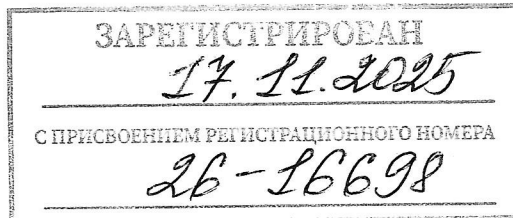 ЗАРЕГИСТРИРОВАН
17.11.2025
С ПРИСВОЕНИЕМ РЕГИСТРАЦИОННОГО НОМЕРА
26-16698